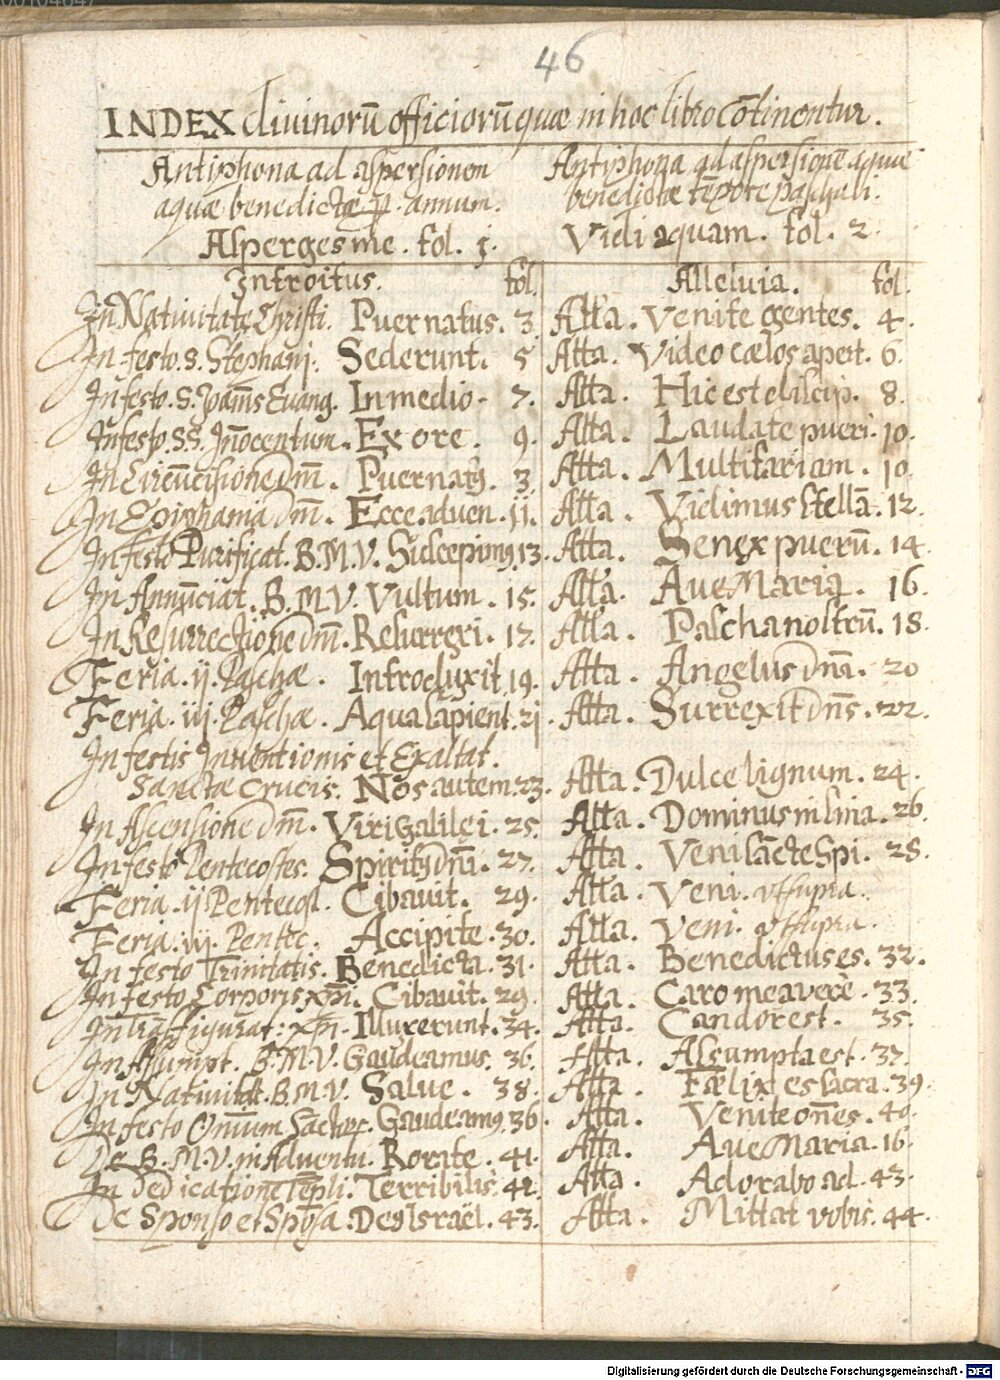 46
INDEX diuinorū officiorū quæ in hoc libro cōtinentur.
Antiphona ad aspersionem
aquæ benedictæ ꝑ annum.
Asperges me. fol. 1.
Antiphona ad aspersionē aquæ
benedictæ tēpore paschali.
Vidi aquam. fol. 2.
Introitus. fol.
Alleluia. fol.
In Natiuitate Christi. Puer natus. 3. Alľa. Venite gentes. 4.
In festo. S. Stephani. Sederunt. 5 Alľa. Video cælos apert. 6.
In festo. S. Joañis Euang. In medio. 7. Alľa. Hic est discip. 8.
In festo. SS. Iñocentum. Ex ore. 9. Alľa. Laudate pueri. 10.
In Circūcisione Dm̄. Puer natꝰ. 3. Alľa. Multifariam. 10.
In Epiphania Dm̄. Ecce aduen. 11. Alľa. Vidimus stellā. 12.
In festo Purificat. B. M. V. Suscepimꝰ. 13. Alľa. Senex puerū. 14
In Annūciat. B. M. V. Vultum. 15. Alľa. Aue Maria. 16.
In Resurrectione Dm̄. Resurrexi. 17. Alľa. Pascha nostrū. 18.
Feria. ij. Paschæ. Introduxit 19. Alľa. Angelus Dn̄i. 20
Feria. iij. Paschæ. Aqua sapient. 21. Alľa. Surrexit Dn̄s. 22.
In festis Inuentionis et Exaltat.
Sanctæ Crucis. Nos autem. 23. Alľa. Dulce lignum. 24.
In Ascensione Dm̄. Viri Galilei. 25. Alľa. Dominus in sina. 26.
In festo Pentecostes. Spiritꝰ Dn̄i. 27. Alľa. Veni sācte Spi. 28.
Feria. ij Pentecost. Cibauit. 29. Alľa. Veni. vt supra.
Feria. iij. Pentec. Accipite. 30. Alľa. Veni. vt supra.
In festo Trinitatis. Benedicta. 31. Alľa. Benedictus es. 32.
In festo Corporis Xp̄i. Cibauit. 29. Alľa. Caro mea verè. 33.
In Trāsfigurat: Xp̄i. Illuxerunt. 34. Alľa. Candor est. 35.
In Assumpt. B. M. V. Gaudeamus. 36. Alľa. Assumpta est. 37
In Natiuitat. B. M. V. Salue. 38. Alľa. Fælix es sacra. 39.
In festo Oñium Sāctoꝝ. Gaudeamꝰ. 36. Alľa. Venite oñes. 40.
De B. M. V. in Aduentu. Rorate. 41. Alľa. Aue Maria. 16.
In Dedicatione Tēpli. Terribilis. 42. Alľa. Adorabo ad. 43.
De Sponso et Spōsa. Deꝰ Israël. 43. Alľa. Mittat vobis. 44.
Digitalisierung gefördert durch die Deutsche Forschungsgemeinschaft - DFG